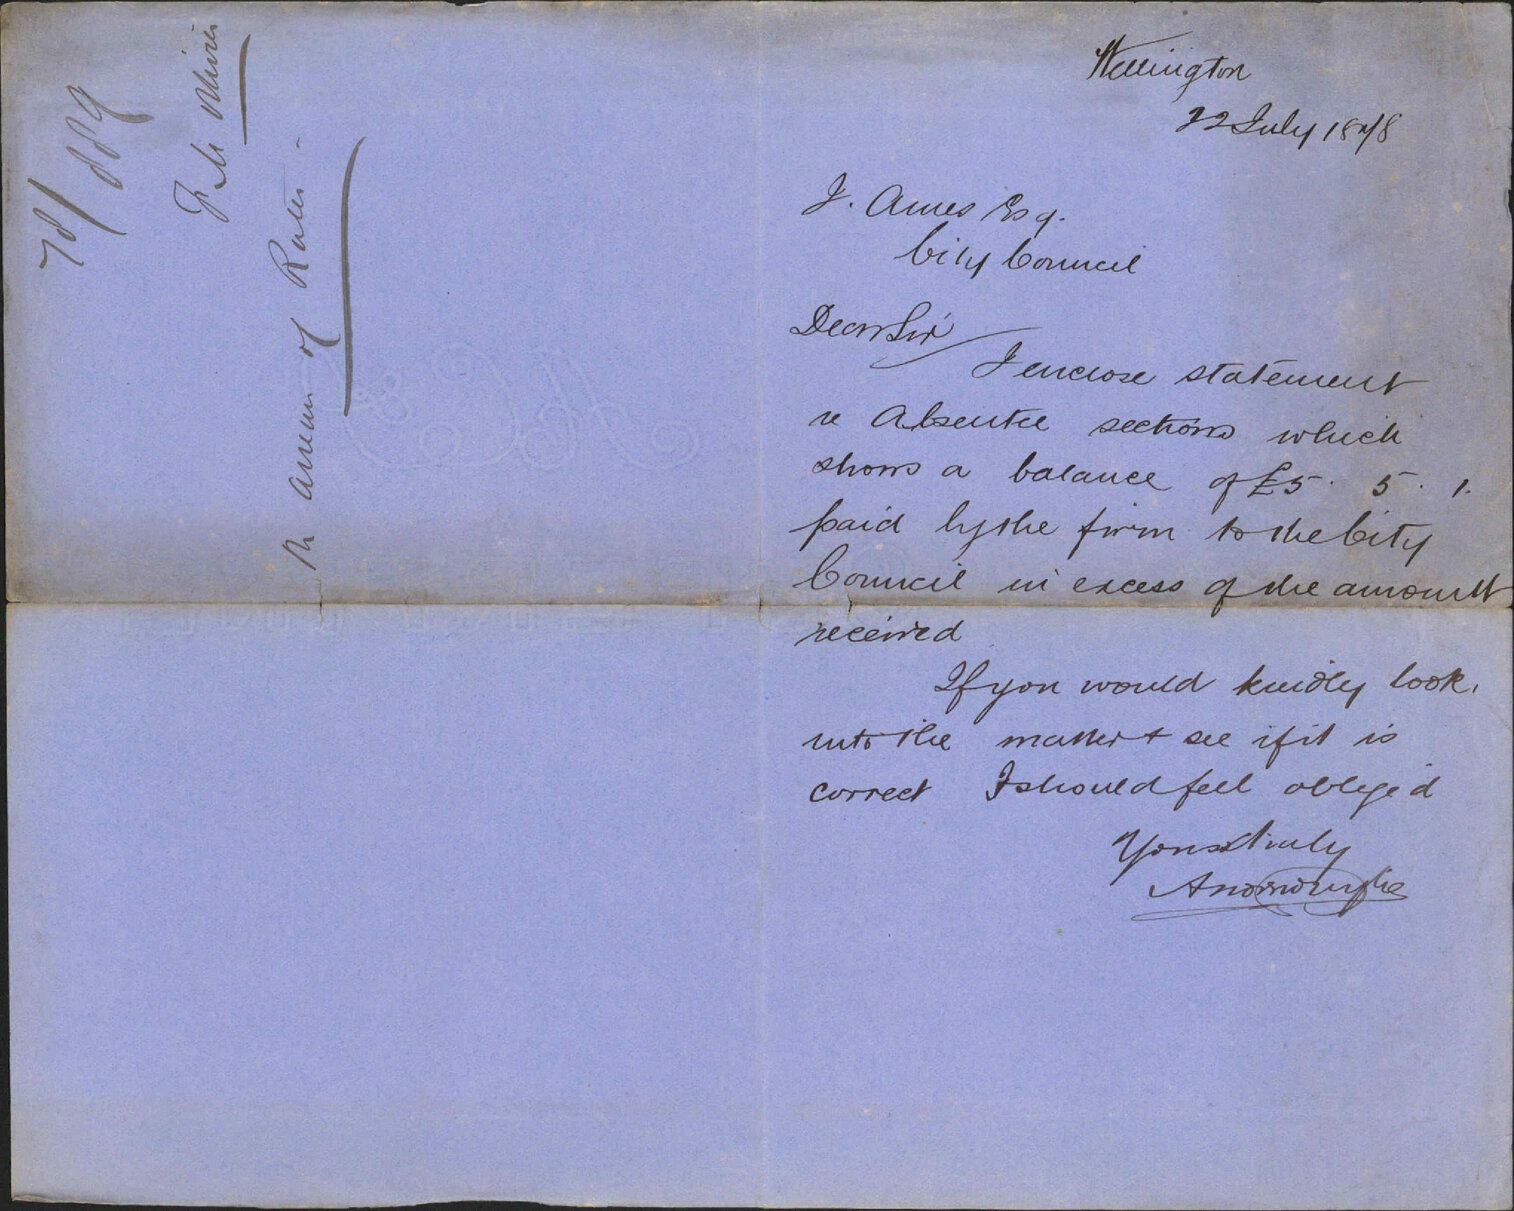 78/889
Re arrears of Rates -
Wellington
22 July 1878
J. Ames Esq.
City Council
Dear Sir
I enclose statement
re Absentee sections which
shows a balance of £5. 5. 1.
paid by the firm to the City
Council in excess of the amount
received
If you would kindly look
into the matter & see if it is
correct I should feel obliged
Yours truly